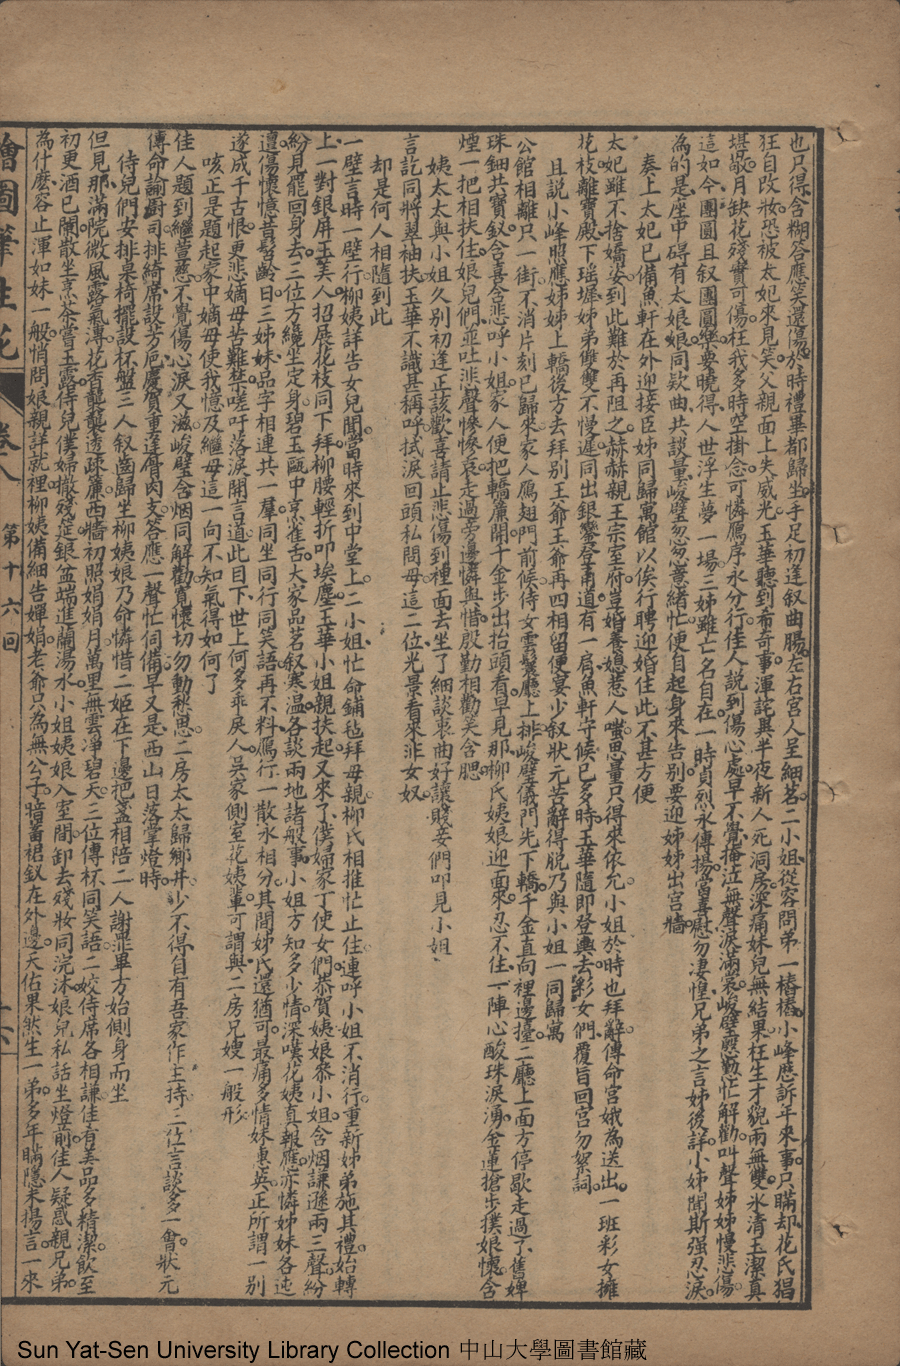 也只得含糊答應笑還傷於時禮畢都歸坐手足初逢叙曲腸左右宮人呈細茗二小姐從容問弟一樁樁小峰歷訴年來事只瞞却花氏猖
狂自改妝恐被太妃來見笑父親面上失威光玉華聽到希奇事渾詫異半夜新人死洞房深痛妹兒無結果枉生才貌兩無雙氷清玉潔真
堪敬月缺花殘實可傷枉我多時空掛念可憐鴈序永分行佳人說到傷心處早不覺掩泣無聲淚滿裳峻璧慇懃忙解勸叫聲姊姊慢悲傷
這如今團圓且叙團圓樂要曉得人世浮生夢一場三姊雖亡名自在一時貞烈永傳揚當喜慰勿淒惶兄弟之言姊後詳小姊聞斯强忍淚
為的是座中碍有太娘娘同欵曲共談量峻璧匆匆意緒忙便自起身來告别要迎姊姊出宮牆
奏上太妃已備魚軒在外迎接臣姊同歸寓館以俟行聘迎婚住此不甚方便
太妃雖不捨嬌姿到此難於再阻之赫赫親王宗室府豈婚養媳惹人嗤思量只得來依允小姐於時也拜辭傳命宮娥為送出一班彩女擁
花枝離寶殿下瑤墀姊弟雙雙不慢遲同出銀鑾登甬道有一肩魚軒守候已多時玉華隨即登輿去彩女們覆旨回宮勿絮詞
且說小峰照應姊姊上轎後方去拜别王爺王爺再四相留便宴少叙狀元苦辭得脫乃與小姐一同歸寓
公館相離只一街不消片刻已歸來家人鴈翅門前候侍女雲鬟廳上排峻璧儀門先下轎千金直向裡邊擡二廳上面方停歇走過了舊婢
珠鈿共寶釵含喜含悲呼小姐家人便把轎簾開千金步出抬頭看早見那柳氏姨娘迎面來忍不住一陣心酸珠淚湧金蓮搶步撲娘懷含
煙一把相扶住娘兒們並吐悲聲慘慘哀走過旁邊憐與惜殷勤相勸笑含腮
姨太太與小姐久别初逢正該歡喜請止悲傷到裡面去坐了細談衷曲好讓賤妾們叩見小姐
言訖同將翠袖扶玉華不識甚稱呼拭淚回頭私問母這二位光景看來非女奴
却是何人相隨到此
一壁言時一壁行柳姨詳告女兒聞當時來到中堂上二小姐忙命鋪毡拜母親柳氏相推忙止住連呼小姐不消行重新姊弟施其禮始轉
上一對銀屏玉美人招展花枝同下拜柳腰輕折叩埃塵玉華小姐親扶起又來了僕婦家丁使女們恭賀姨娘叅小姐含烟謙遜兩三聲紛
紛見罷回身去三位方纔坐定身碧玉甌中烹雀舌大家品茗叙寒溫各談兩地諸般事小姐方知多少情深嘆花姨真報應亦憐姊妹各迍
邅傷懷憶昔髫齡日三姊妹品字相連共一羣同坐同行同笑語再不料鴈行一散永相分其間姊氏還猶可最痛多情妹蕙英正所謂一别
遂成千古恨更悲嫡母苦難禁嗟吁落淚開言道此目下世上何多乖戾人吳家側室花姨輩可謂與二房兄嫂一般形
咳正是題起家中嫡母使我憶及繼母這一向不知氣得如何了
佳人題到繼萱慈不覺傷心淚又滋峻璧含烟同解勸寬懷切勿動愁思二房太太歸鄉井少不得自有吾家作主持二位言談多一會狀元
傳命諭厨司排綺席設芳巵慶賀重逢骨肉支答應一聲忙伺備早又是西山日落掌燈時
侍兒們安排桌椅擺設杯盤三人叙齒歸坐柳姨娘乃命憐惜二姬在下邊把盞相陪二人謝罪畢方始側身而坐
但見那滿院微風露氣薄花香龍襲透疎簾西牆初照娟娟月萬里無雲淨碧天三位傳杯同笑語二姣侍席各相謙佳肴美品多精潔飲至
初更酒已闌散坐烹茶嘗玉露侍兒僕婦撤殘筵銀盆端進蘭湯水小姐姨娘入室間卸去殘妝同浣沐娘兒私話坐燈前佳人疑惑親兄弟
為什麽容止渾如妹一般悄問娘親詳就裡柳姨備細告嬋娟老爺只為無公子暗蓄裙釵在外邊天佑果然生一弟多年瞞隱未揚言一來
繪圖筆生花 卷八 第十六回
Sun Yat-Sen University Library Collection 中山大學圖書館藏